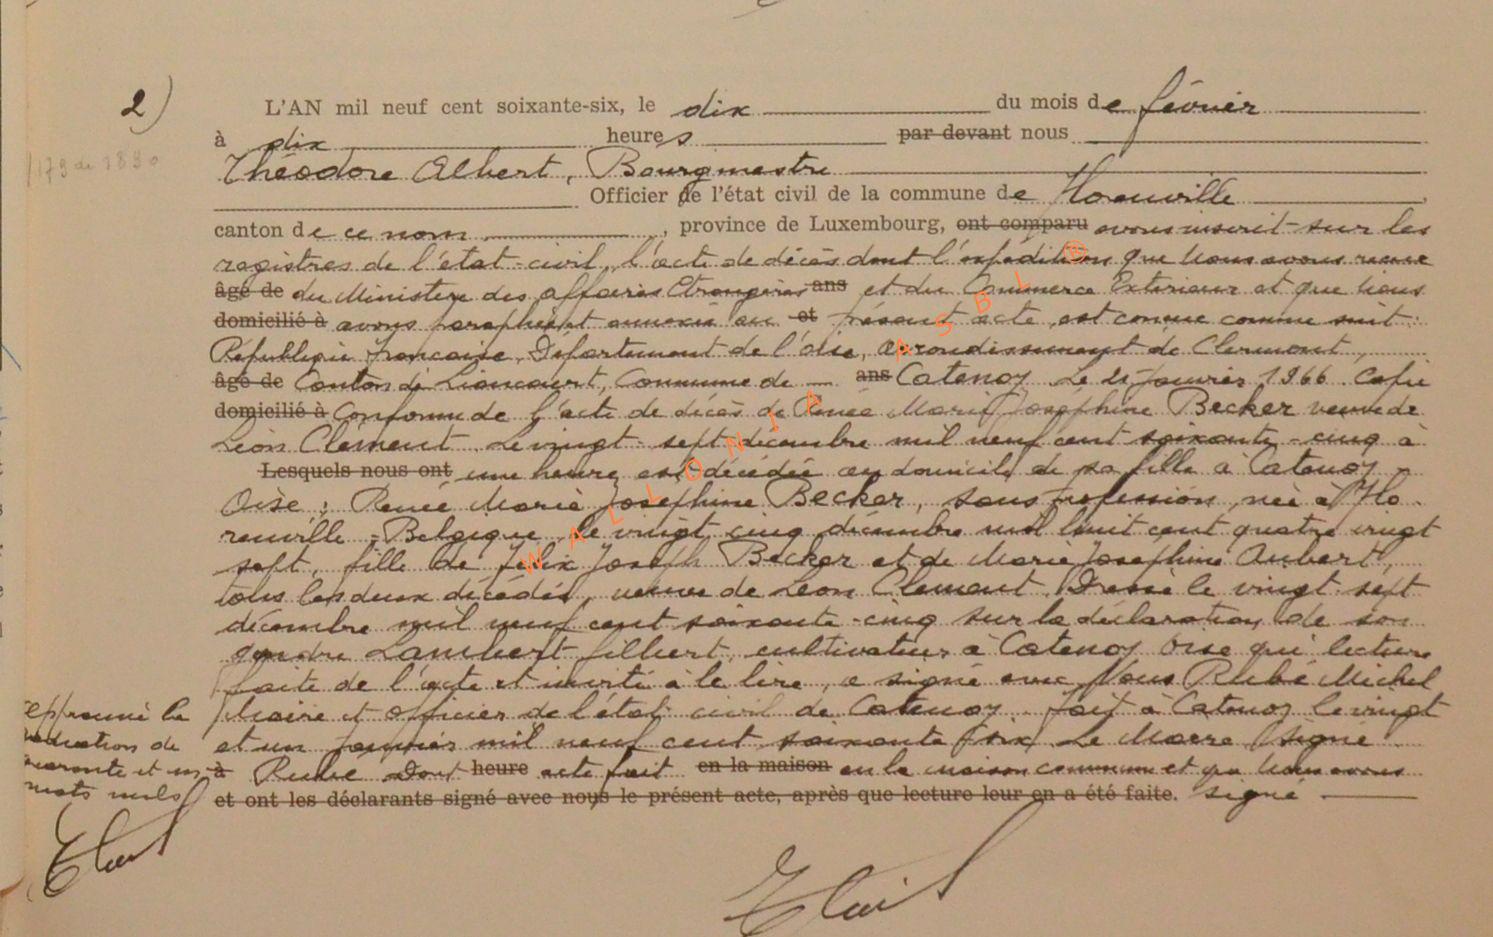 2) L'AN mil neuf cent soixante-six, le dix du mois de février
à dix heures par devant nous
179 de 1890
Théodore Albert, Bourgmestre
Officier de l'état civil de la commune de Homuville
canton de ce nom, province de Luxembourg, ont comparu avons inscrit sur les
registres de l'état-civil, l'acte de décès dont l'expédition que Nous avons reçue
âgé de du Ministère des affaires Etrangères ans et du Commerce Extérieur et que Nous
domicilié à avons paraphé et annexée au et présent acte, est connue comme suit :
République française, Département de l'Oise, arrondissement de Clermont,
âgé de Canton de Liancourt, Commune de ans Catenoy Le 21 Janvier 1966 Copie
domicilié à Conforme de l'acte de décès de Renée Marie Joséphine Becker veuve de
Léon Clement Le vingt-sept décembre mil neuf cent soixante-cinq à
Lesquels nous ont une heure est décédée au domicile de sa fille à Catenoy -
Oise : Renée Marie Josephine Becker, sans profession, née à Ho-
renville - Belgique, le vingt cinq décembre mil huit cent quatre vingt
sept, fille de Felix Joseph Becker et de Marie Josephine Aubert,
tous les deux décédés, veuve de Léon Clement. Dressé le vingt-sept
décembre mil neuf cent soixante-cinq sur la déclaration de son
gendre Lambert filbert, cultivateur à Catenoy Oise qui lecture
faite de l'acte et invité à le lire, a signé avec Nous Rubé Michel
Maire et officier de l'état civil de Catenoy. fait à Catenoy le vingt
et un Janvier mil neuf cent soixante six Le Maire (signé
à Rubé Dont heure acte fait en la maison en la maison commune et que Nous avons
et ont les déclarants signé avec nous le présent acte, après que lecture leur en a été faite. signé
approuvé la
radiation de
quarante et un
mots nuls
WALLONIA ASBL ®